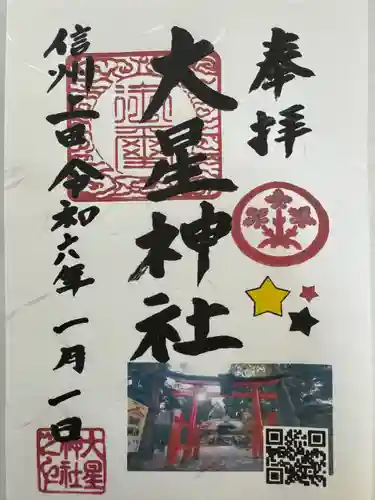 奉拝
大星神社
信州上田
令和六年一月一日
大星
神社
之印